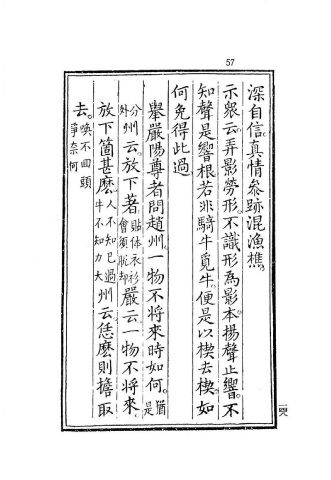 57
深自信。真情叅跡混漁樵。
示衆云。弄影勞形。不識形為影本。揚聲止響。不
知聲是響根。若非騎牛覓牛。便是以楔去楔。如
何免得此過
舉嚴陽尊者問趙州。一物不將來時如何。猶是
分外州云。放下著貼体衣衫會須脫却嚴云。一物不將來。
放下箇甚麽人不知己過牛不知力大州云。恁麽則擔取
去。喚不回頭爭奈何